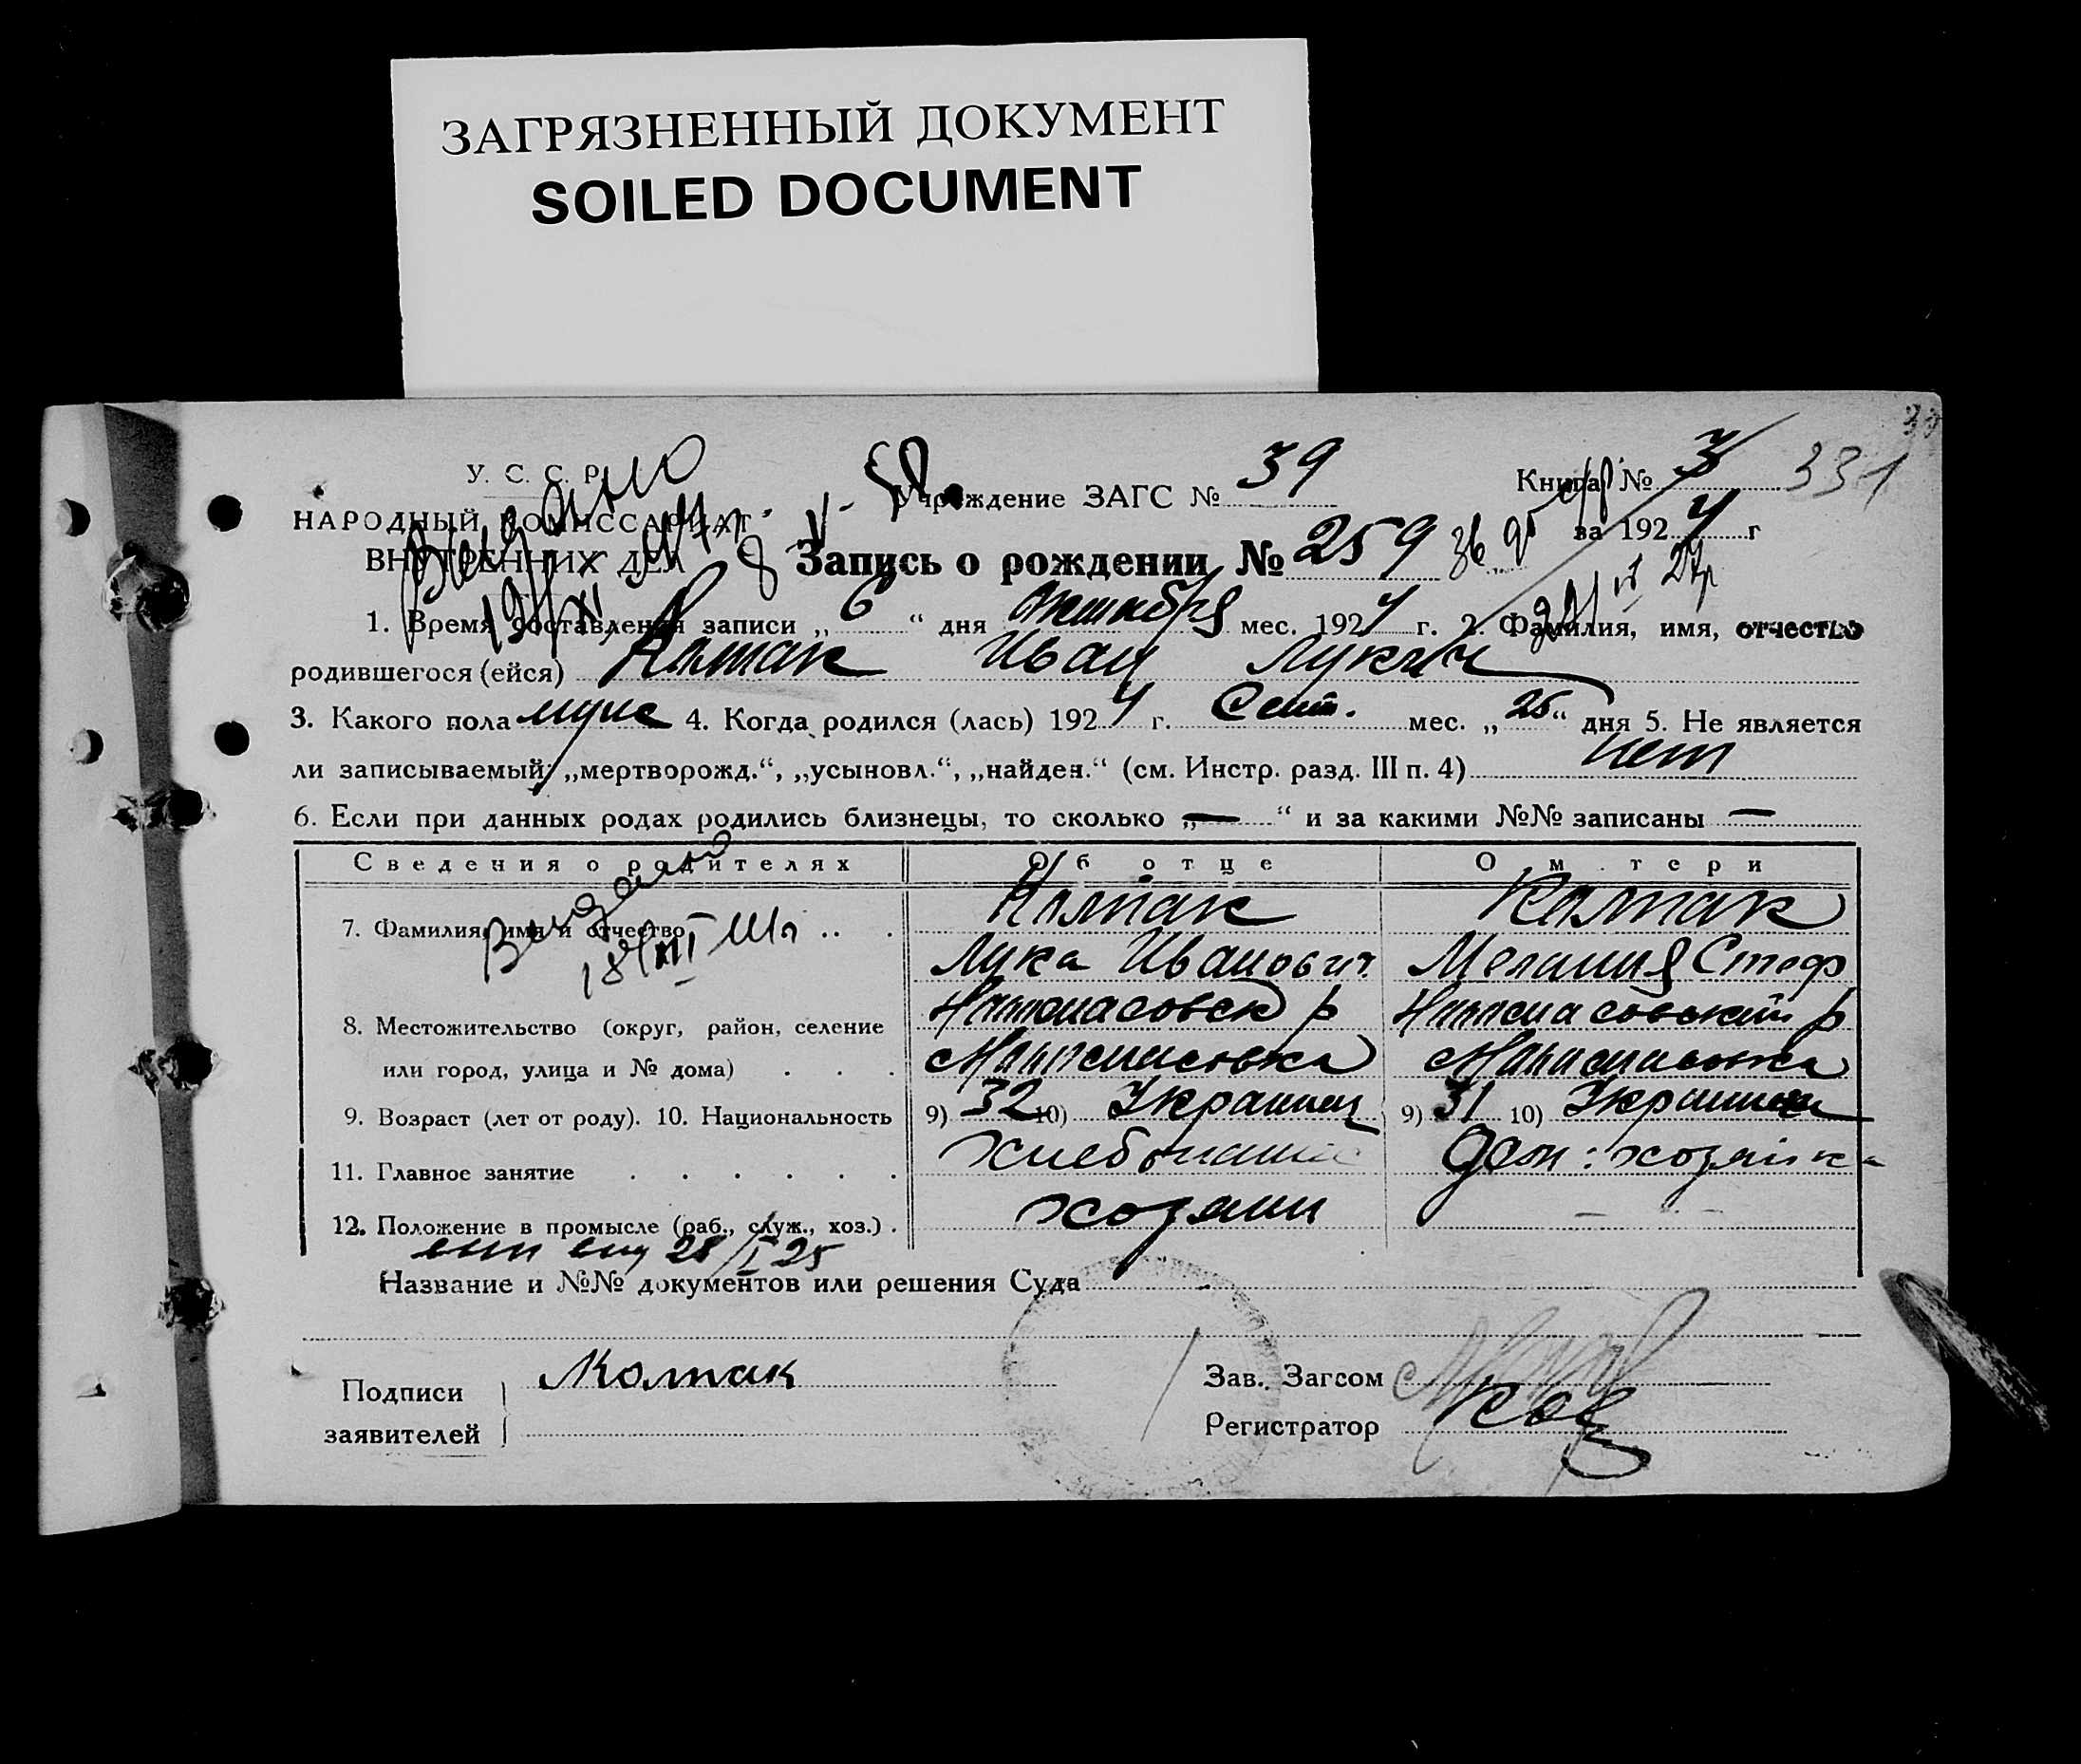 ЗАГРЯЗНЕННЫЙ ДОКУМЕНТ
SOILED DOCUMENT
У. С. С. Р.
НАРОДНЫЙ КОМИССАРИАТ
ВНУТРЕННИХ ДЕЛ
Выдано
Учреждение ЗАГС № 39
Книга № 3 331
за 1924 г
Запись о рождении № 259
1. Время составления записи „6“ дня октября мес. 1924 г. 2. Фамилия, имя, отчество
родившегося (ейся) Колтак Иван Лукич
3. Какого пола муж 4. Когда родился (лась) 1924 г. Сент. мес. „25“ дня 5. Не является
ли записываемый „мертворожд.“, „усыновл.“, „найден.“ (см. Инстр. разд. III п. 4) нет
6. Если при данных родах родились близнецы, то сколько „—“ и за какими №№ записаны —
Сведения о родителях Об отце О м тери
7. Фамилия, имя и отчество Колтак Колтак
Выдано
Лука Иванович Мелания Стеф
8. Местожительство (округ, район, селение
или город, улица и № дома)
9. Возраст (лет от роду). 10. Национальность 9) 32 10) Украинец 9) 31 10) Украинка
11. Главное занятие хлебопашец дом: хозяйка
12. Положение в промысле (раб., служ., хоз.) хозяин
28/I 25
Название и №№ документов или решения Суда
Подписи
заявителей
Колтак
Зав. Загсом
Регистратор